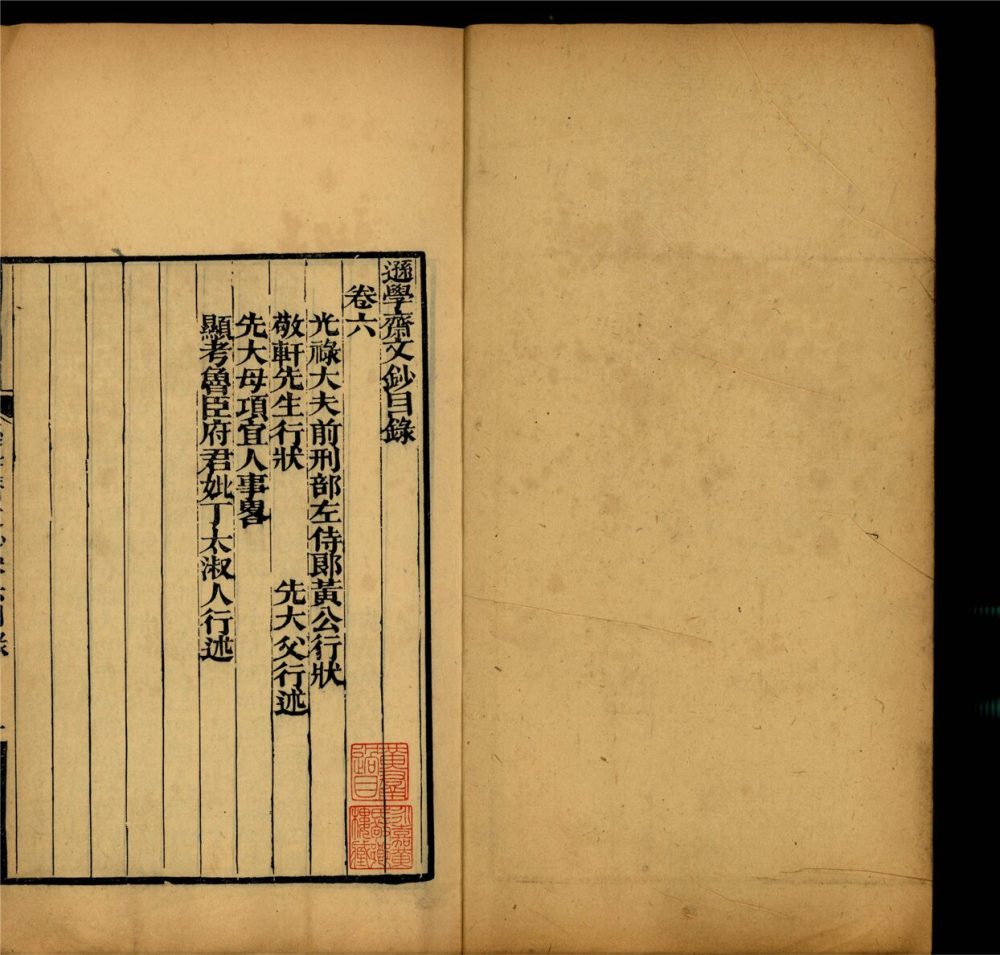 遜學齋文鈔目錄
卷六
光祿大夫前刑部左侍郎黃公行狀
敬軒先生行狀 先大父行述
先大母項宜人事畧
顯考魯臣府君妣丁太淑人行述